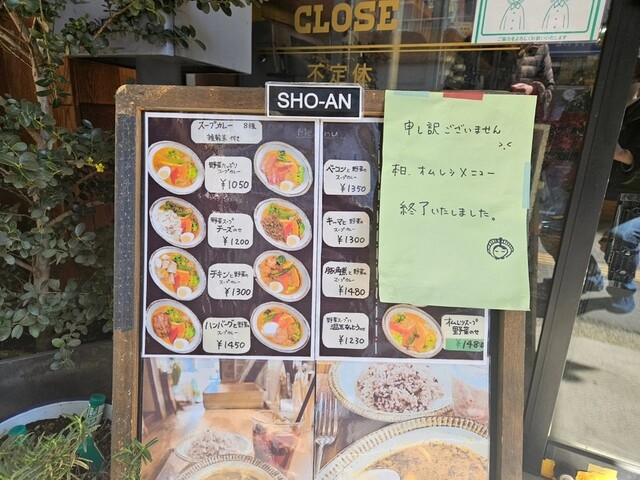 CLOSE
不定休
SHO-AN
スープカレー 8種
雑穀米 付き
Menu
野菜たっぷり
スープカレー
¥1050
野菜スープ
チーズのせ
¥1200
チキンと野菜の
スープカレー
¥1300
ハンバーグと野菜の
スープカレー
¥1450
ベーコンと野菜の
スープカレー
¥1350
キーマと野菜の
スープカレー
¥1300
豚角煮と野菜の
スープカレー
¥1480
野菜スープと
¥1230
オムレツスープ
野菜のせ
¥1480
申し訳ございません
>.<
本日、オムレツメニュー
終了いたしました。